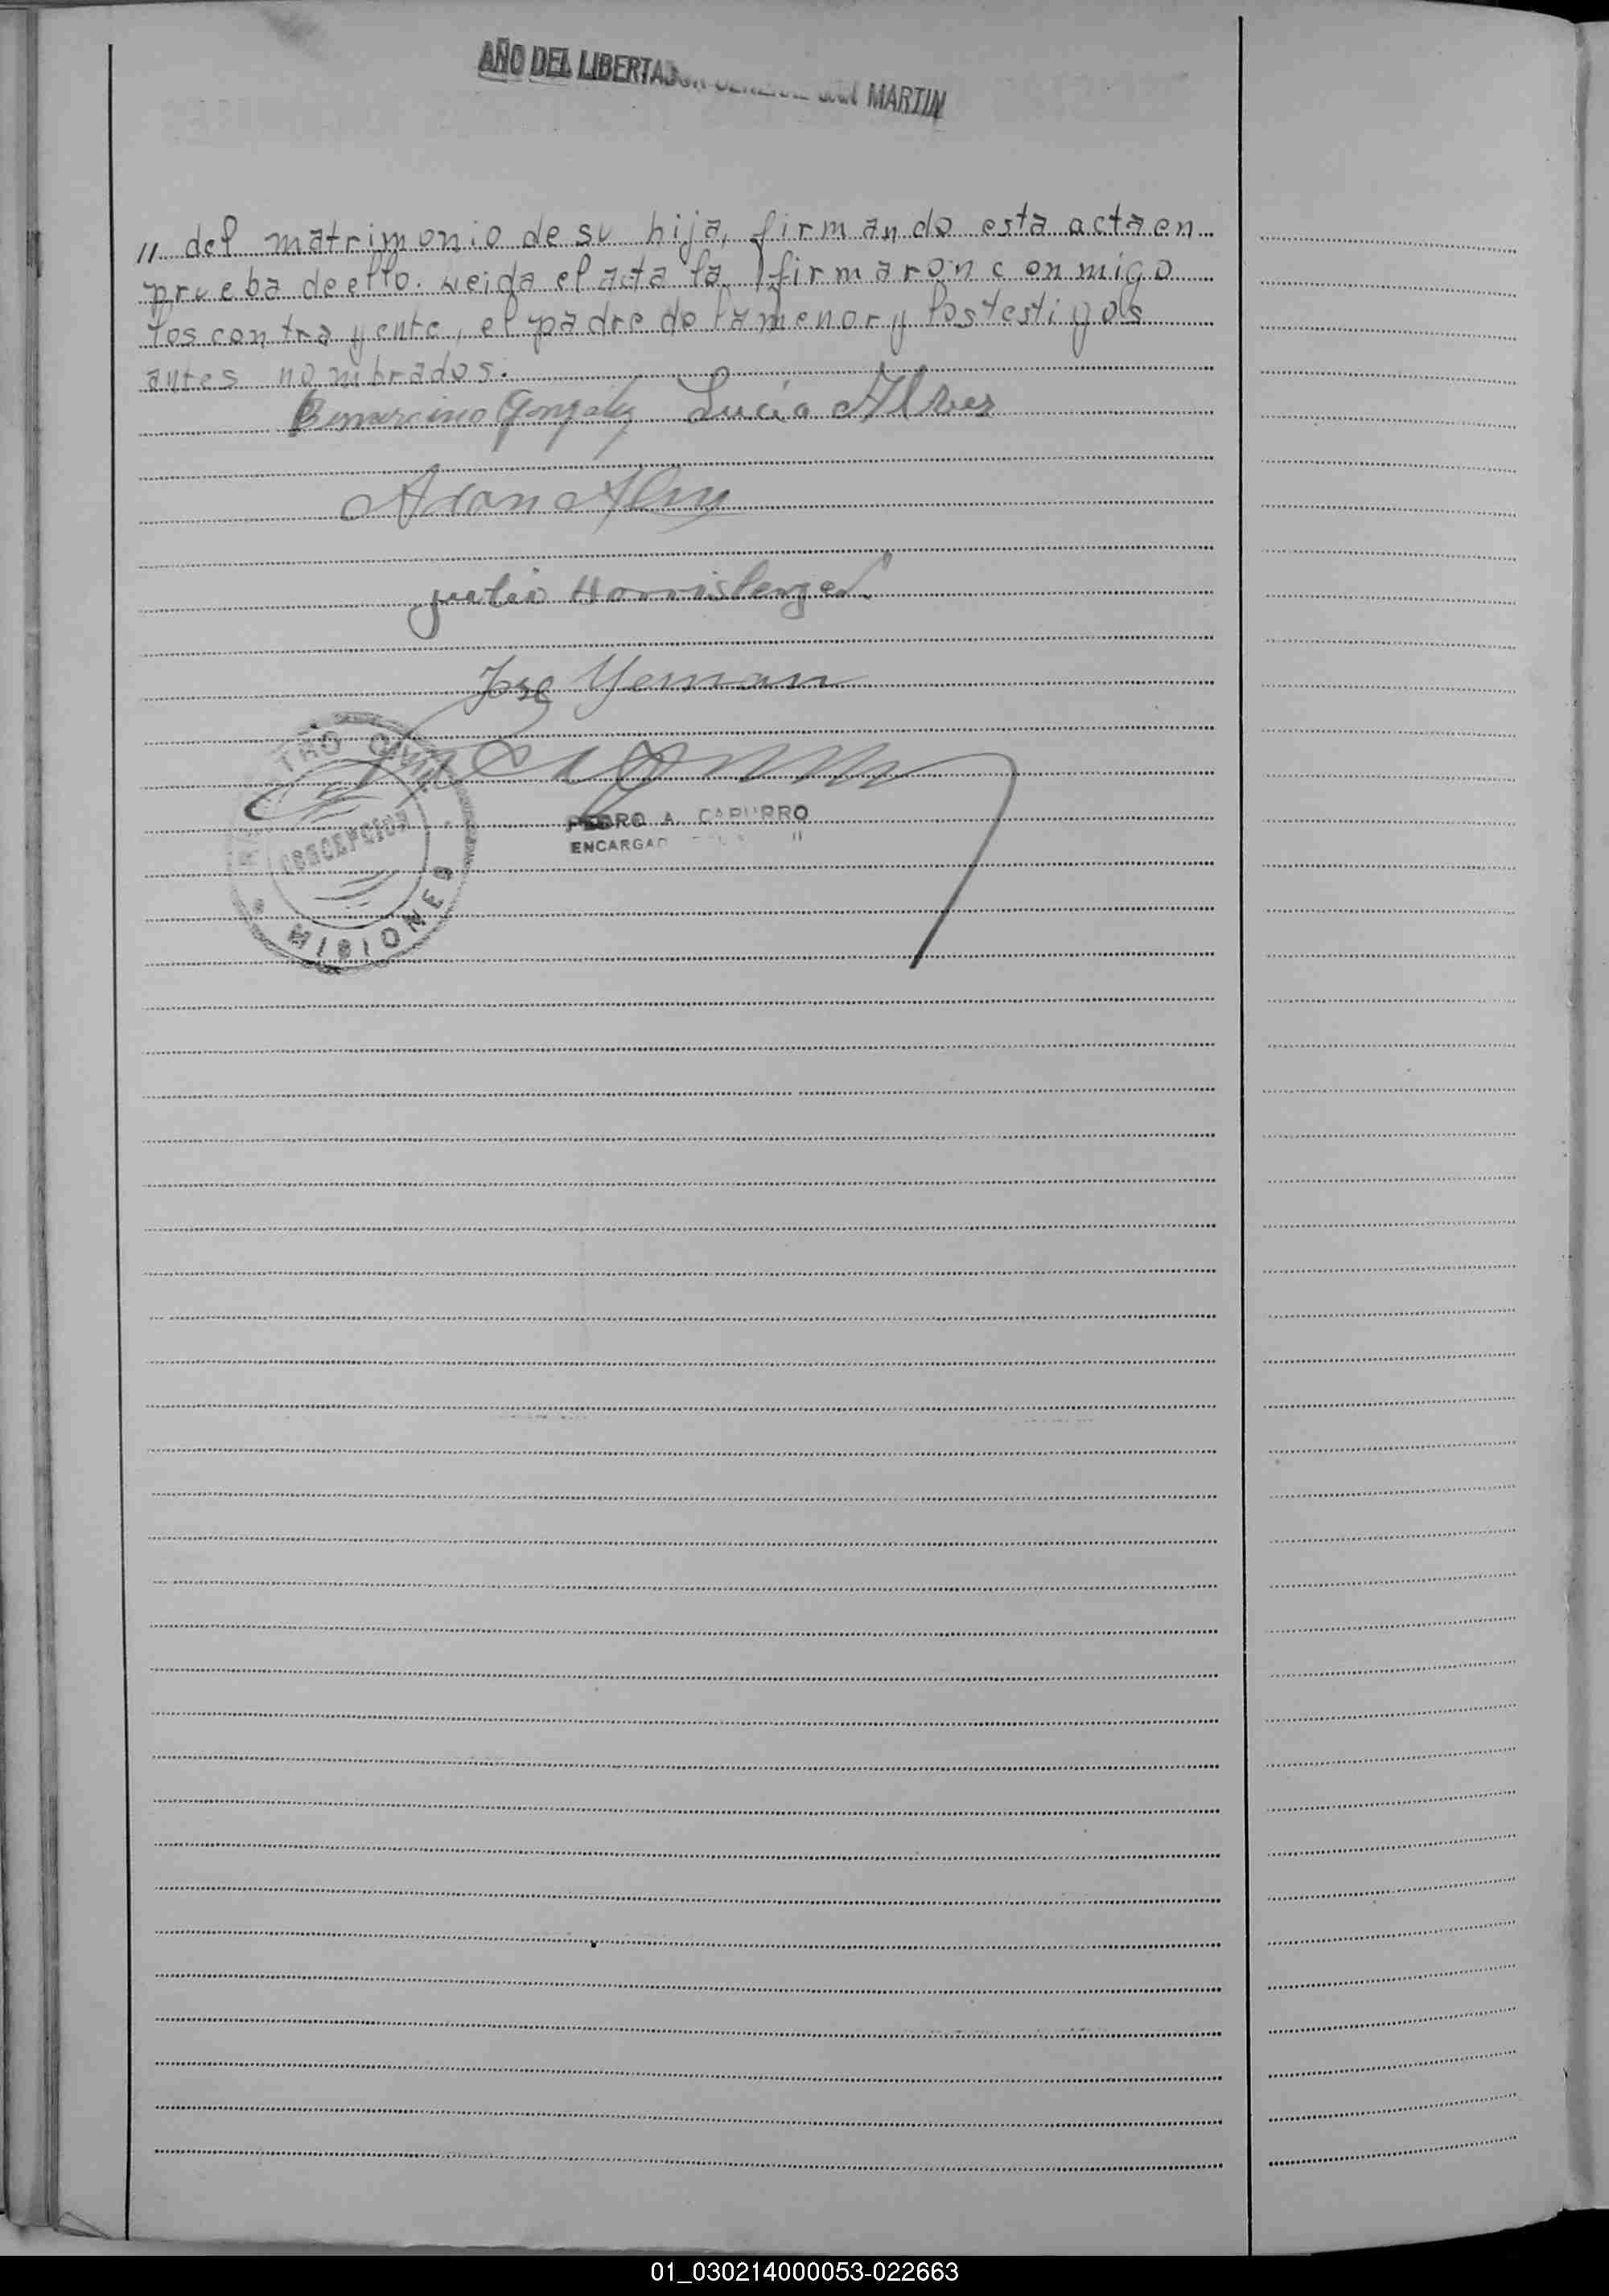 AÑO DEL LIBERTADOR GENERAL SAN MARTIN
" del matrimonio de su hija, firmando esta acta en
prueba de ello. Leida el acta la firmaron conmigo
los contrayente, el padre de la menor y los testigos
antes nombrados.
Gonzalez Lucia Alves
Julio
José Yeman
REGISTRO CIVIL
CONCEPCION
MISIONES
PEDRO A. CAPURRO
ENCARGAD
01_030214000053-022663